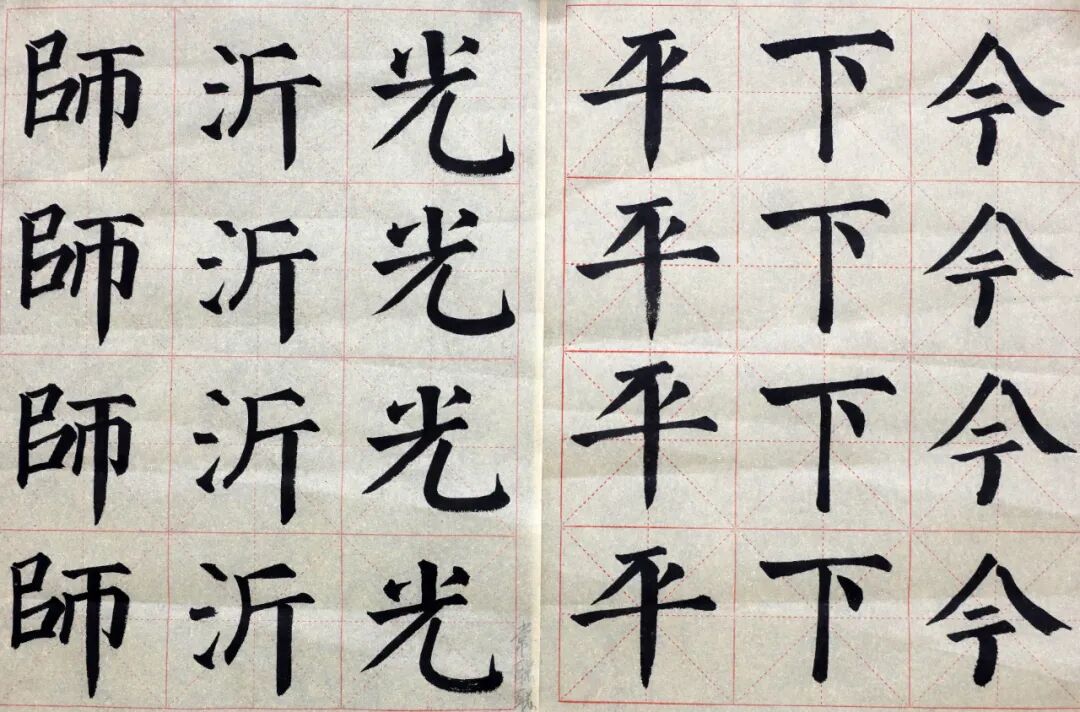 今今今今
下下下下
平平平平
光光光光
沂沂沂沂
師師師師